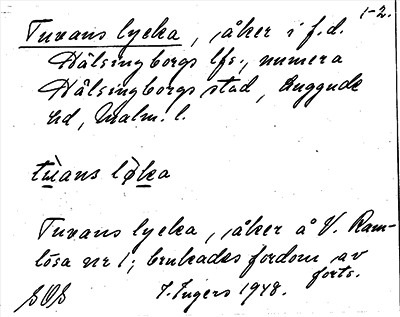 1-2.
Tuvans lycka, åker i f.d.
Hälsingborgs lfs., numera
Hälsingborgs stad, Luggude
hd, Malm. l.
tùans lỳka
Tuvans lycka, åker å V. Ram-
lösa nr 1; brukades fordom av
forts.
SOS J. Ingers 1948.